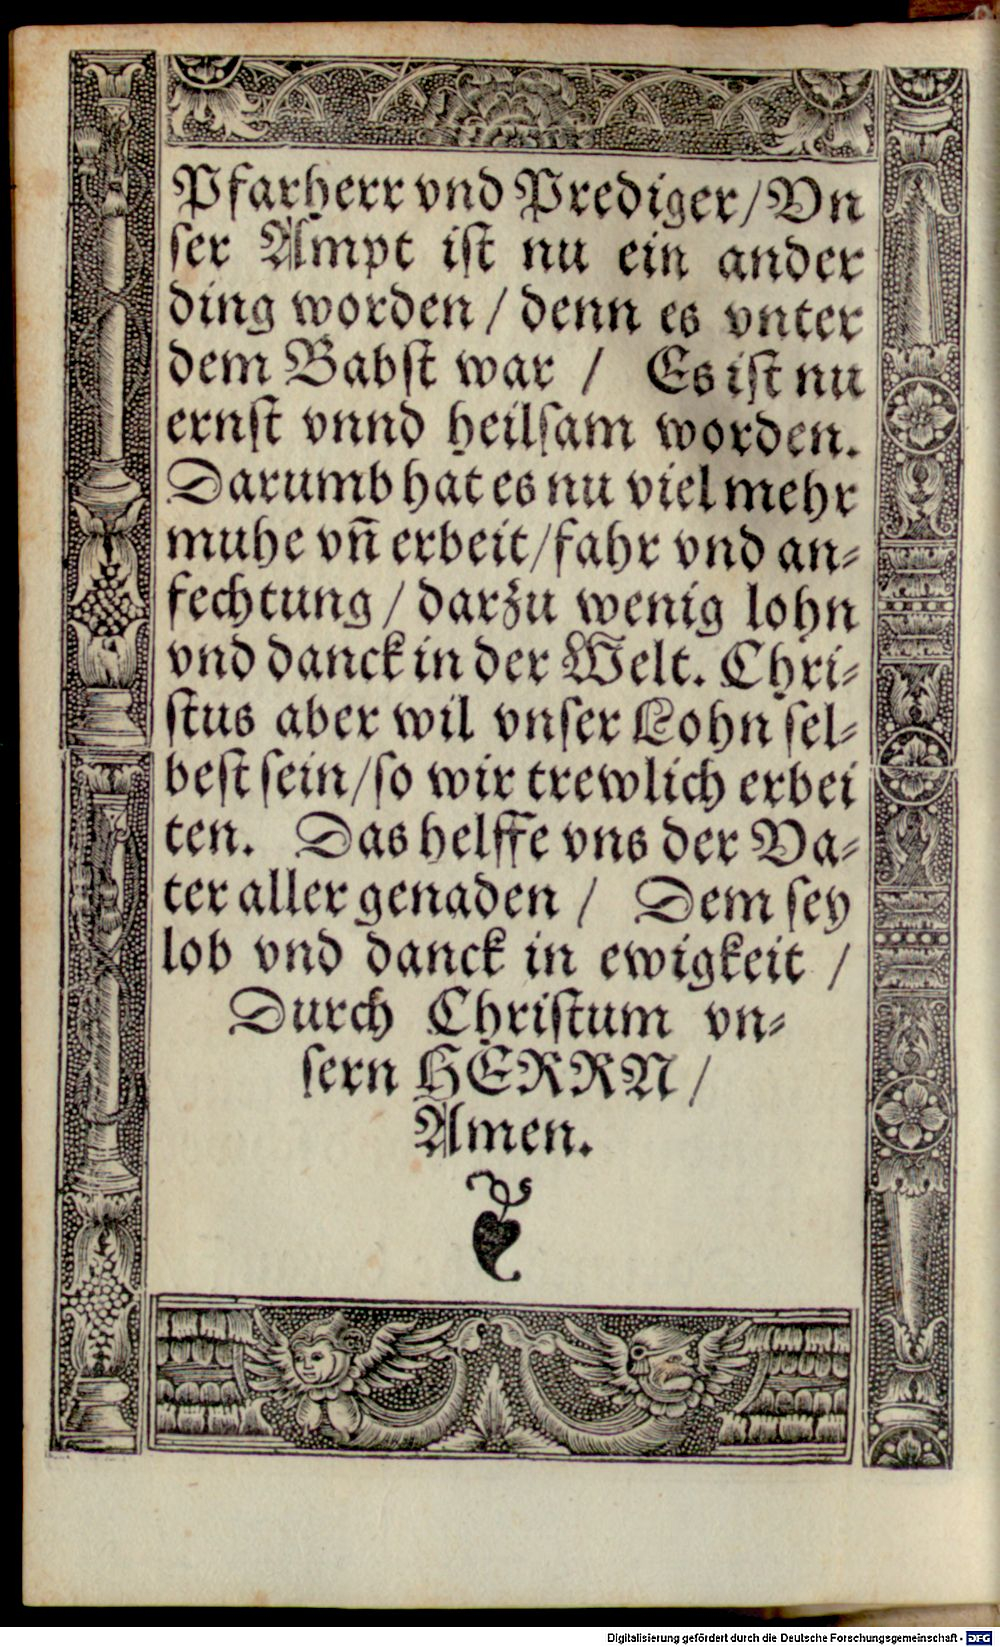 Pfarherr vnd Prediger/ Vn
ſer Ampt iſt nu ein ander
ding worden / denn es vnter
dem Babſt war / Es iſt nu
ernſt vnnd heilſam worden.
Darumb hat es nu viel mehr
muhe vñ erbeit/ fahr vnd an⸗
fechtung / darzu wenig lohn
vnd danck in der Welt. Chri⸗
ſtus aber wil vnſer Lohn ſel⸗
beſt ſein/ ſo wir trewlich erbei
ten. Das helffe vns der Va⸗
ter aller genaden / Dem ſey
lob vnd danck in ewigkeit /
Durch Chriſtum vn⸗
ſern HERRN /
Amen.
Digitalisierung gefördert durch die Deutsche Forschungsgemeinschaft - DFG